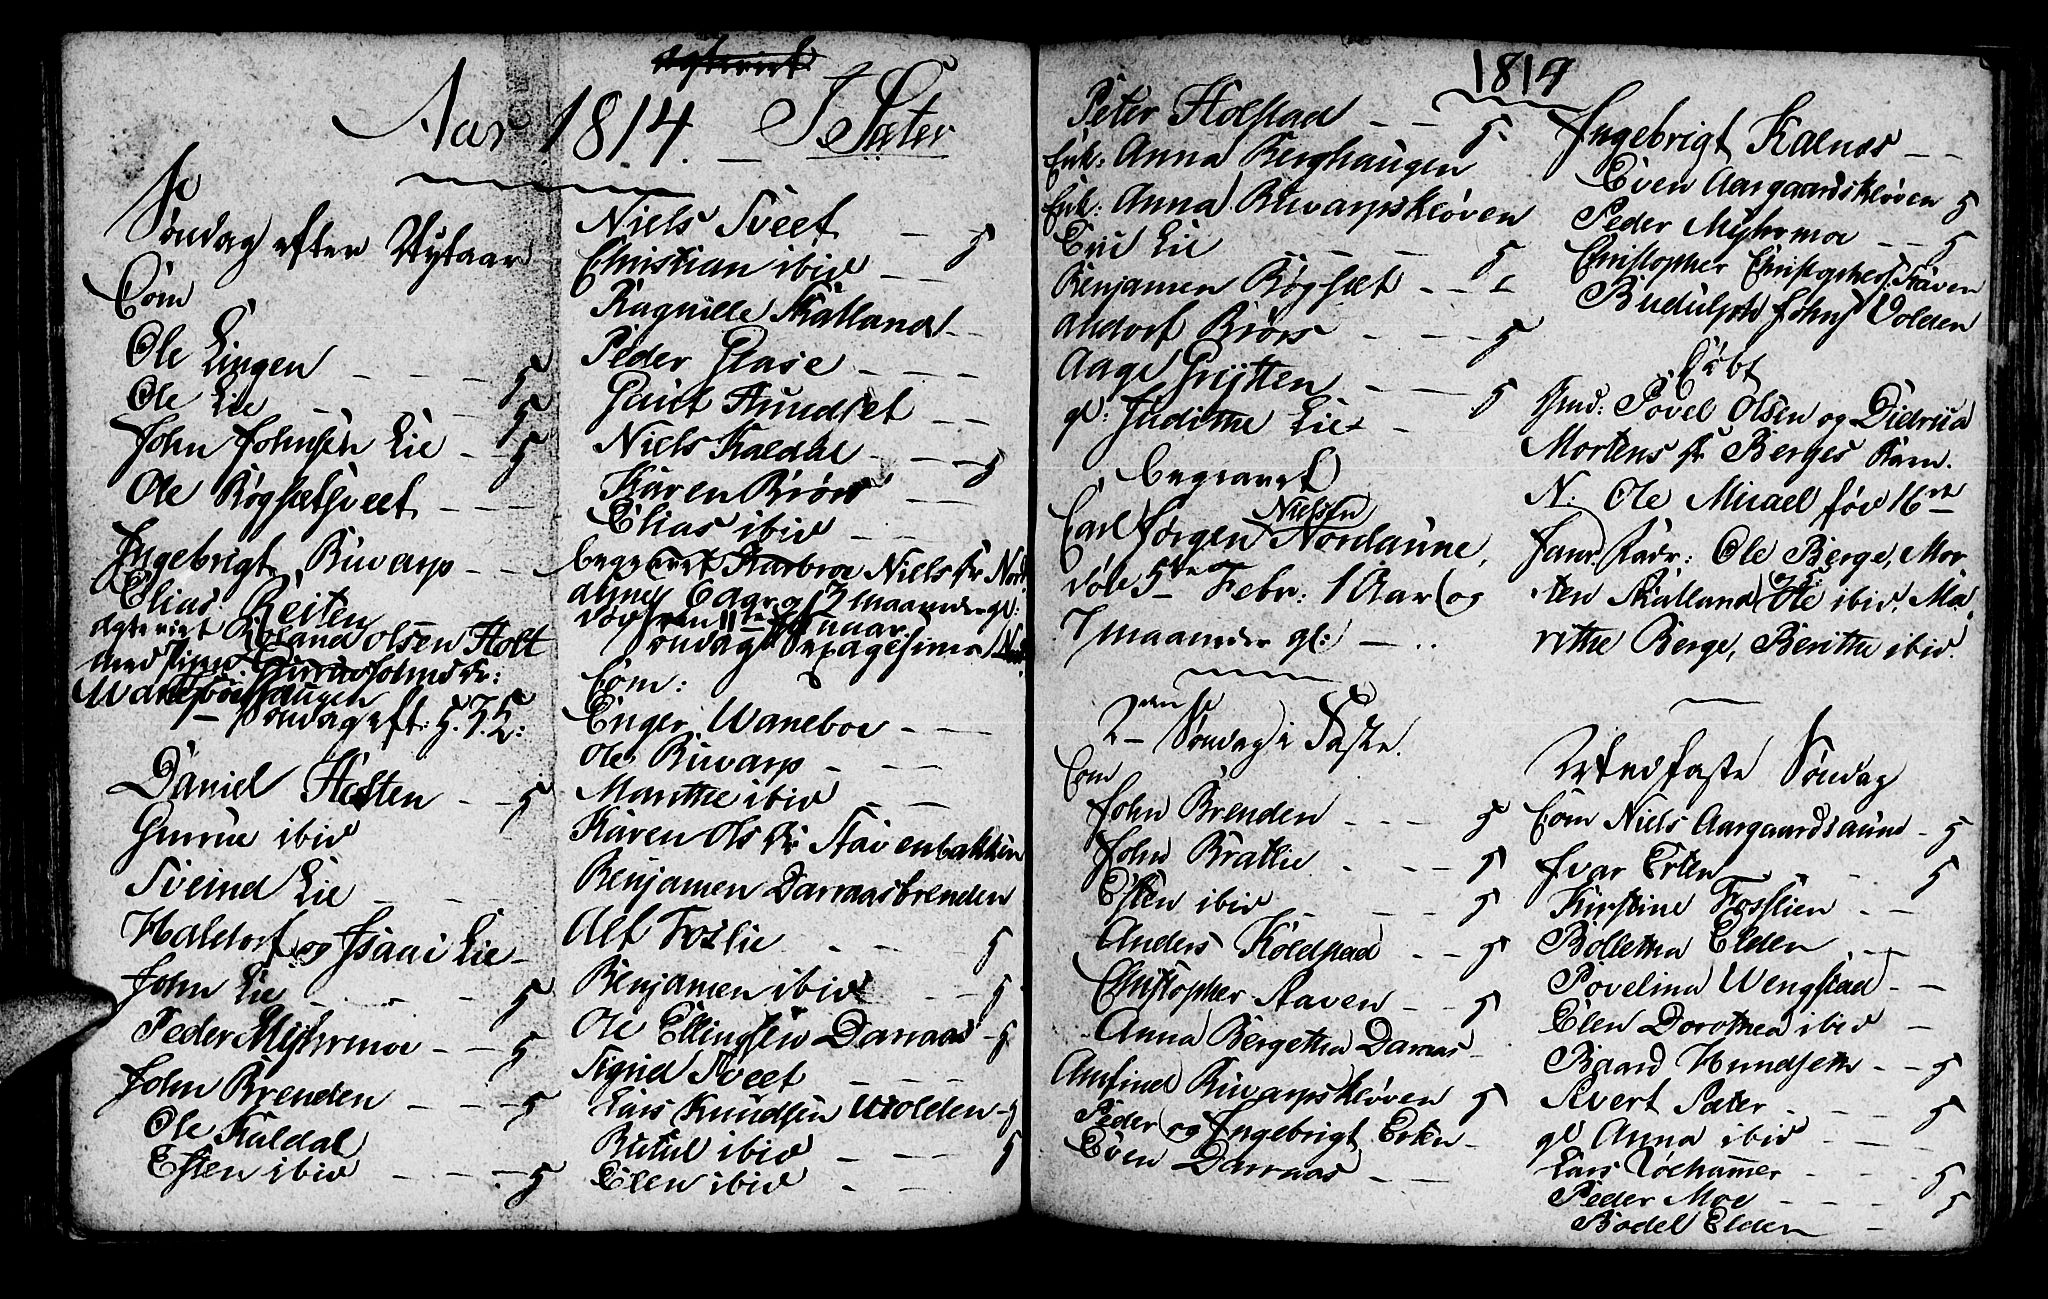 Aar 1814. I Sæter
Søndag efter Nytaar
Com
Ole Lingen 5
Ole Lie 5
John Johnsen Lie 5
Ole Røgsætsveet
Ingebrigt Ruvarp
Elias Reiten
Roland Olsen Holt
med
Søndag eft: H. 3 K:
Daniel Hesten 5
Gurrue ibid
Sveind Lie
Haldorf og Isaac Lie
John Lie 5
Peder Myhrmoe 5
John Brenden 5
Ole Kaldal
Esten ibid 5
Niels Sveet 5
Christian ibid
Ragnille Skalland
Peder Glase
Gurit Hundset
Niels Kaldal 5
Karen Brørs
Elias ibid
begravet Niels Dr
6 Aar og 3 maaneder gl:
død den 11te Januar
Søndag Sexagesima
Com:
Enger Waneboe
Ole Ruvarp
Marithe ibid
Karen Ols Dr Stavenbakken
Benjamen Darraasbrenden
Alf Foslie 5
Benjamen ibid 5
Ole Ellingsen Darraas 5
Sigrid Sveet
Lars Knudsen Wolden 5
Rutul ibid 5
Elen ibid
1814
Peter Holstad 5
Enk: Anna Berghaugen
Enk: Anna Ruvarpskløven
Eric Lie 5
Benjamen Røgsæt
Aldorf Brørs 5
Aage Grytten 5
gl: Judithe Lie
begravet
Carl Jørgen Nielsen Nordaune,
døde 5te Febr: 1 Aar og
7 maaneder gl:
2den Søndag i Faste.
Com
John Brenden 5
John Bratlie 5
Esten ibid 5
Anders Koldstad 5
Christopher Staven 5
Anna Bergetha Darraas
Anfind Ruvarpskløven 5
Peder og Ingebrigt Erten
Even Darraas
Ingebrigt Kalnæs
Even Aargaardskløven 5
Peder Myhrmoe 5
Christopher Christophers: Staven
Rudulph Johns Volden
Døbt
Gmd: Povel Olsen og Didricia
Mortens Dr Berges Barn.
N. Ole Micael fød 16de
Janr. Fadr: Ole Berge, Mor-
ten Skalland, Ole ibid. Ma-
rithe Berge, Berithe ibid.
Midfaste Søndag
Com Niels Aargaardsaune 5
Ivar Erten 5
Kirstine Fosslien
Bolletha Elden
Povelina Wengstad
Elen Dorothea ibid
Baard Hundsem 5
Sivert Sæter 5
gl Anna ibid
Lars Lochammer 5
Peder Moe 5
Bodel Elden